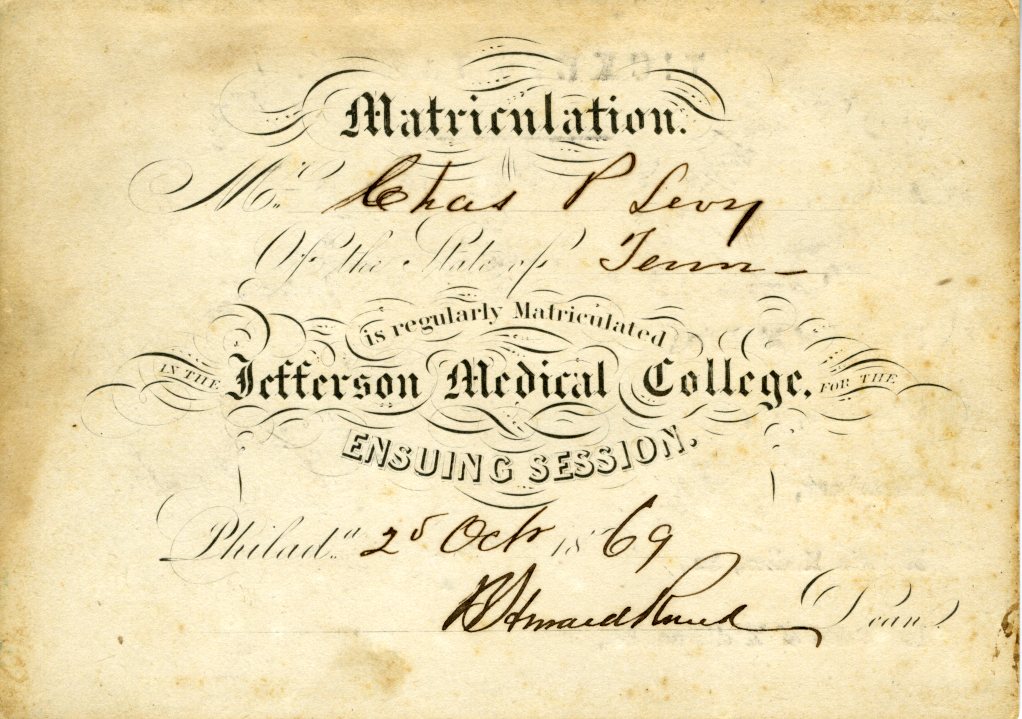 Matriculation.
Mr. Chas P Levy
Of the State of Tenn
is regularly Matriculated
IN THE Jefferson Medical College, FOR THE
ENSUING SESSION.
Philada. 2d Oct 1869
B Howard Rand Dean